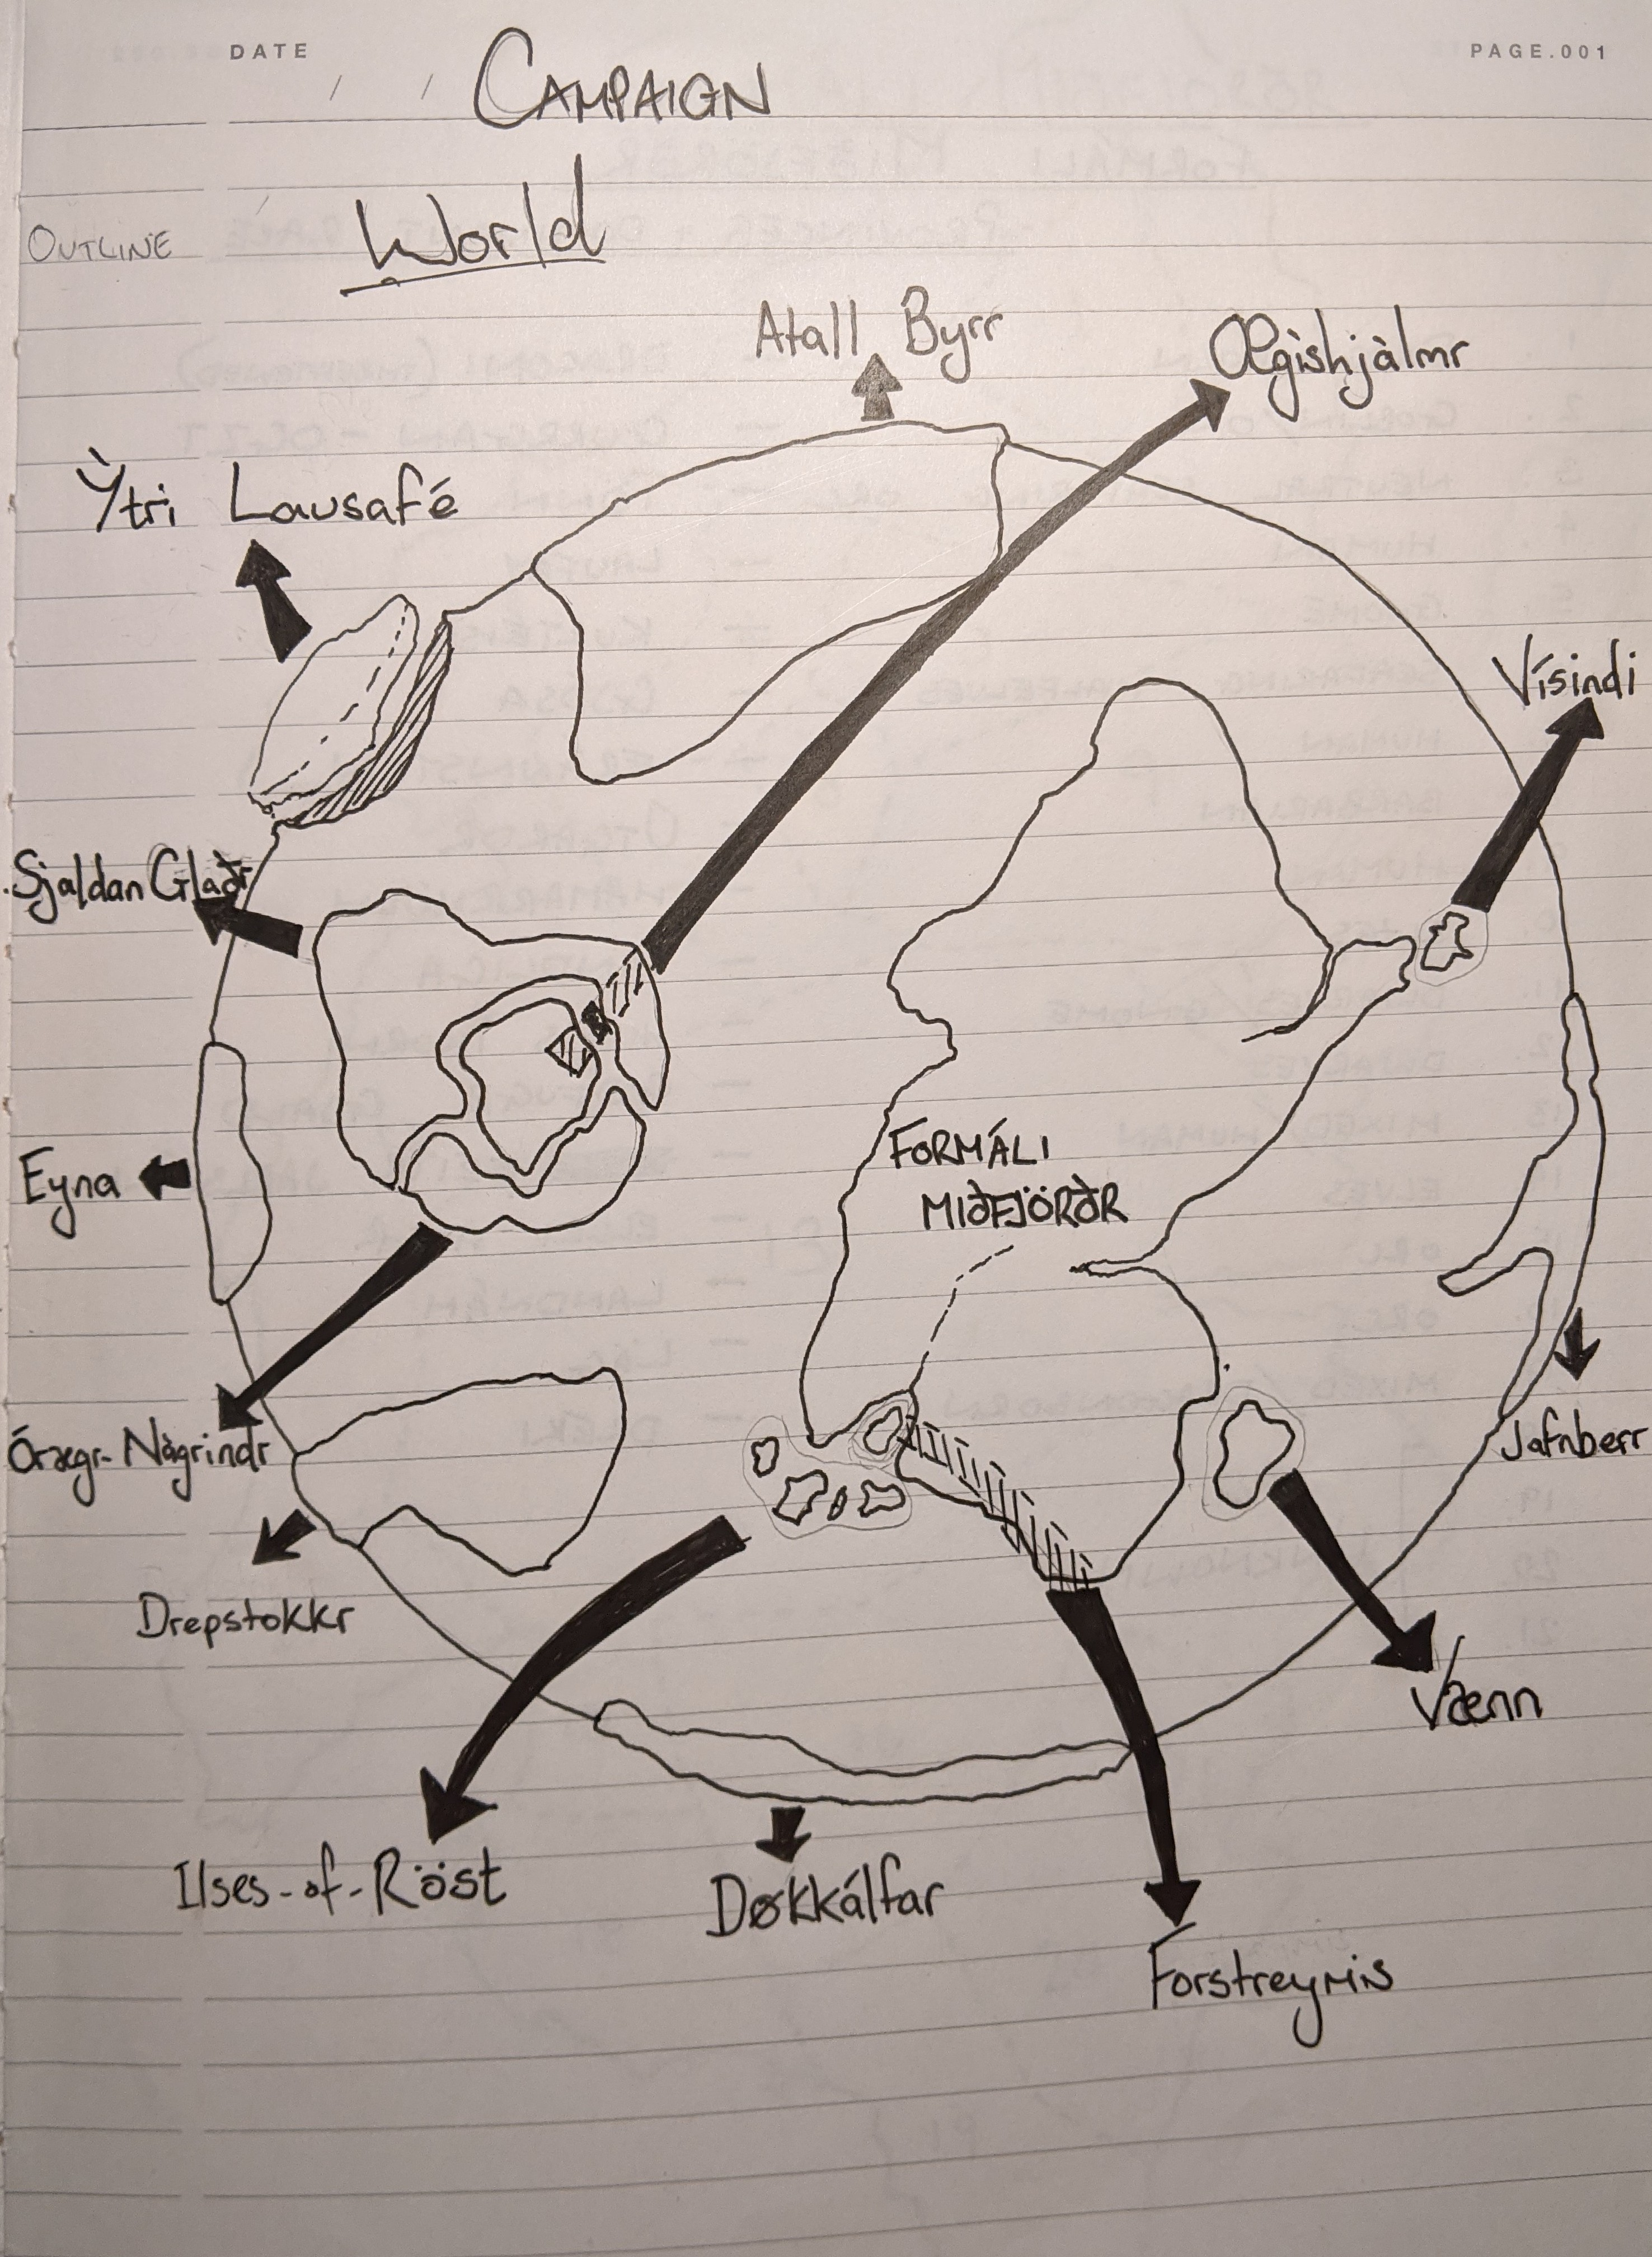 DATE / /
PAGE.001
CAMPAIGN
World
OUTLINE
Atall Byrr
Œgishjàlmr
Ỳtri Lausafé
Vísindi
Sjaldan Glaðr
Eyna
FORMÁLI
MIÐFJÖRÐR
Órægr-Nàgrindr
Jafnberr
Drepstokkr
Vænn
Ilses-of-Röst
Døkkálfar
Forstreymis